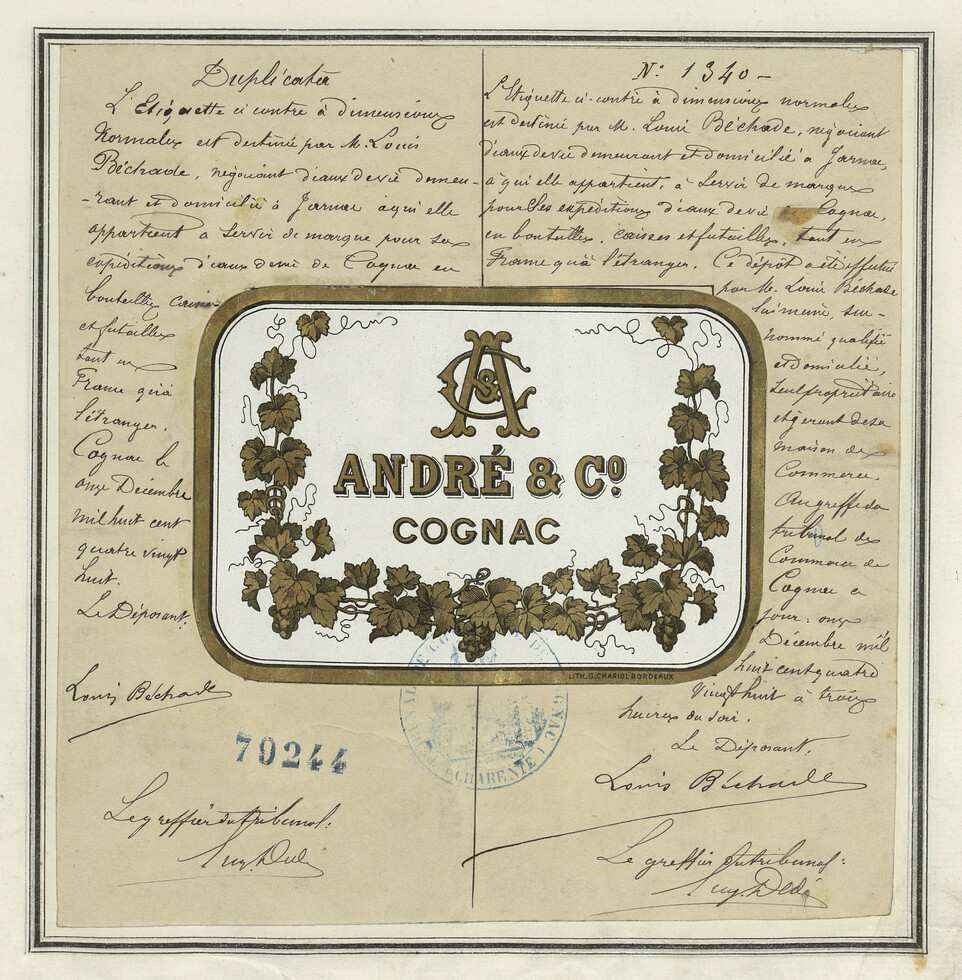 Duplicata
L'Etiquette ci contre à dimensions
Normales est destiné par M. Louis
Béchade, négociant d'eaux de vie demeu-
-rant et domicilié à Jarnac à qui elle
appartient a servir de marque pour ses
expéditions d'eaux de vie de Cognac en
bouteilles caisses
et futailles
tant en
France qu'à
l'étranger.
Cognac le
onze Décembre
mil huit cent
quatre vingt
huit.
Le Déposant.
Louis Béchade
79244
Le greffier du tribunal:
N° 1340 -
L'Etiquette ci-contre à dimensions normales
est destiné par M. Louis Béchade, négociant
d'eaux de vie demeurant et domicilié à Jarnac,
à qui elle appartient, à servir de marque
pour ses expéditions d'eaux de vie de Cognac,
en bouteilles, caisses et futailles, tant en
France qu'à l'étranger. Ce dépôt a été effectué
par M. Louis Béchade
lui même, sus-
nommé qualifié
et domicilié,
seul propriétaire
et gérant de sa
maison de
Commerce.
Au greffe du
tribunal de
Commerce de
Cognac ce
jour: onze
Décembre mil
huit cent quatre
vingt huit à trois
heures du soir.
Le Déposant.
Louis Béchade
Le greffier du tribunal:
A & C
ANDRÉ & Cº
COGNAC
LITH. G. CHARIOL BORDEAUX
CHARENTE